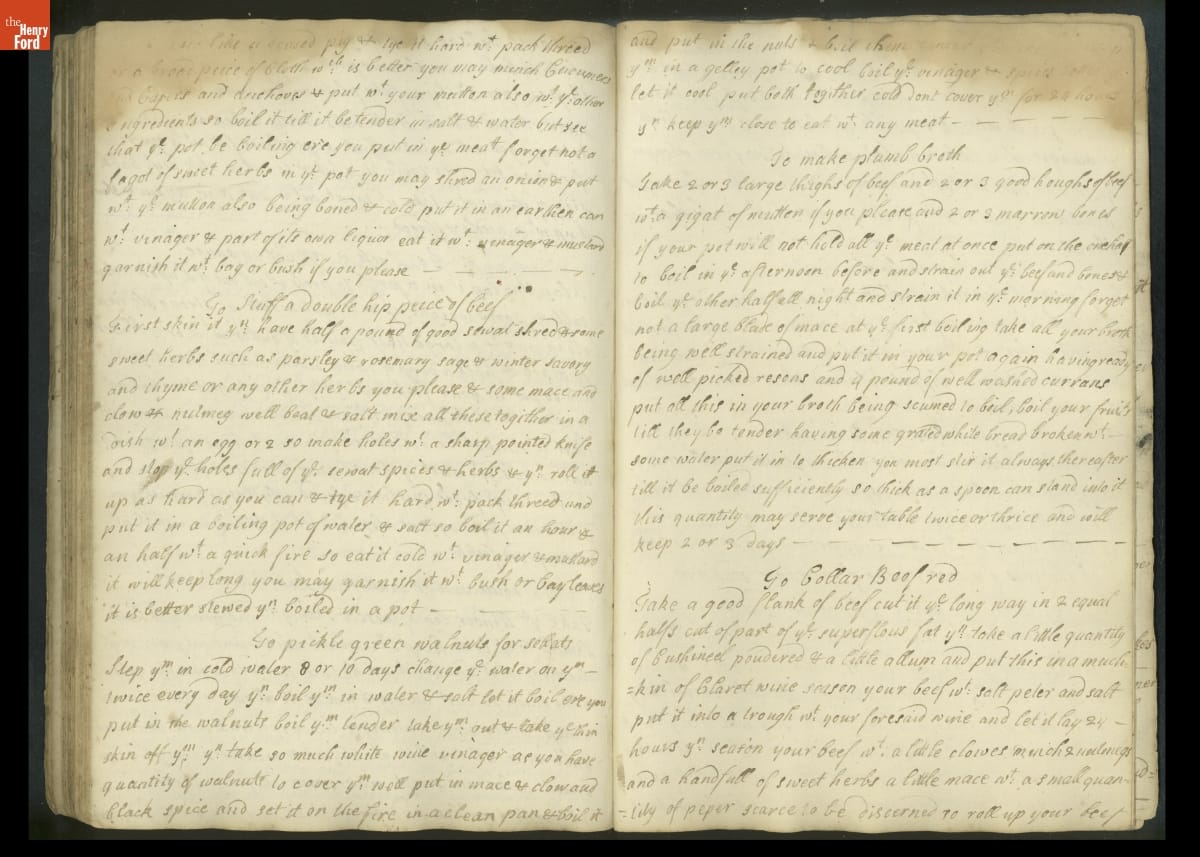 the
Henry
Ford
like a sowsed pig & tye it hard wt pack threed
or a broad peice of Cloth wch is better you may minch Cucumers
and Capers and Anchoves & put wt your mutton also wt ye other
Ingredients so boil it till it be tender in salt & water but see
that ye pot be boiling ere you put in ye meat forget not a
fagot of sweet herbs in ye pot you may shred an onion & put
wt ye mutton also being boned & cold put it in an earthen can
wt vinager & part of its own liquor eat it wt vinager & mustard
garnish it wt bay or bush if you please —
To Stuff a double hip peece of beef
First skin it yn have half a pound of good sewat shred & some
sweet herbs such as parsley & rosemary sage & winter savory
and thyme or any other herbs you please & some mace and
clow & nutmeg well beat & salt mix all these together in a
dish wt an egg or 2 so make holes wt a sharp pointed knife
and stop ye holes full of ye sewat spices & herbs & yn roll it
up as hard as you can & tye it hard wt pack threed and
put it in a boiling pot of water & salt so boil it an hour &
an half wt a quick fire so eat it cold wt vinager & mustard
it will keep long you may garnish it wt bush or bay leaves
it is better stewed yn boiled in a pot —
To pickle green walnuts for sallats
Steep ym in cold water 8 or 10 days change ye water on ym —
twice every day yn boil ym in water & salt let it boil ere you
put in the walnuts boil ym tender take ym out & take ye thin
skin off ym yn take so much white wine vinager as you have
quantity of walnuts to cover ym well put in mace & clow and
black spice and set it on the fire in a clean pan & boil it
and put in the nuts & boil them
ym in a gelley pot to cool boil ye vinager & spices
let it cool put both together cold dont cover ym for 24 hours
yn keep ym close to eat wt any meat —
To make plumb broth
Take 2 or 3 large thighs of beef and 2 or 3 good houghs of beef
wt a gigat of mutten if you please and 2 or 3 marrow bones
if your pot will not hold all ye meat at once put on the one half
to boil in ye afternoon before and strain out ye beef and bones &
boil ye other half all night and strain it in ye morning forget
not a large blade of mace at ye first boiling take all your broth
being well strained and put it in your pot again having ready
of well picked resons and 4 pound of well washed currans
put all this in your broth being scumed to boil, boil your fruits
till they be tender having some grated white bread broken wt —
some water put it in to thicken you most stir it always thereafter
till it be boiled sufficiently so thick as a spoon can stand into it
this quantity may serve your table twice or thrice and will
keep 2 or 3 days —
To Collar Beef red
Take a good flank of beef cut it ye long way in 2 equal
halfs cut of part of ye superflous fat yn take a little quantity
of Cushineel poudered & a little allum and put this in a much-
=kin of Claret wine season your beef wt salt peter and salt
put it into a trough wt your foresaid wine and let it lay 24 —
hours yn season your beef wt a little clowes minch & nutmegs
and a handfull of sweet herbs a little mace wt a small quan-
=tity of peper scarce to be discerned so roll up your beef